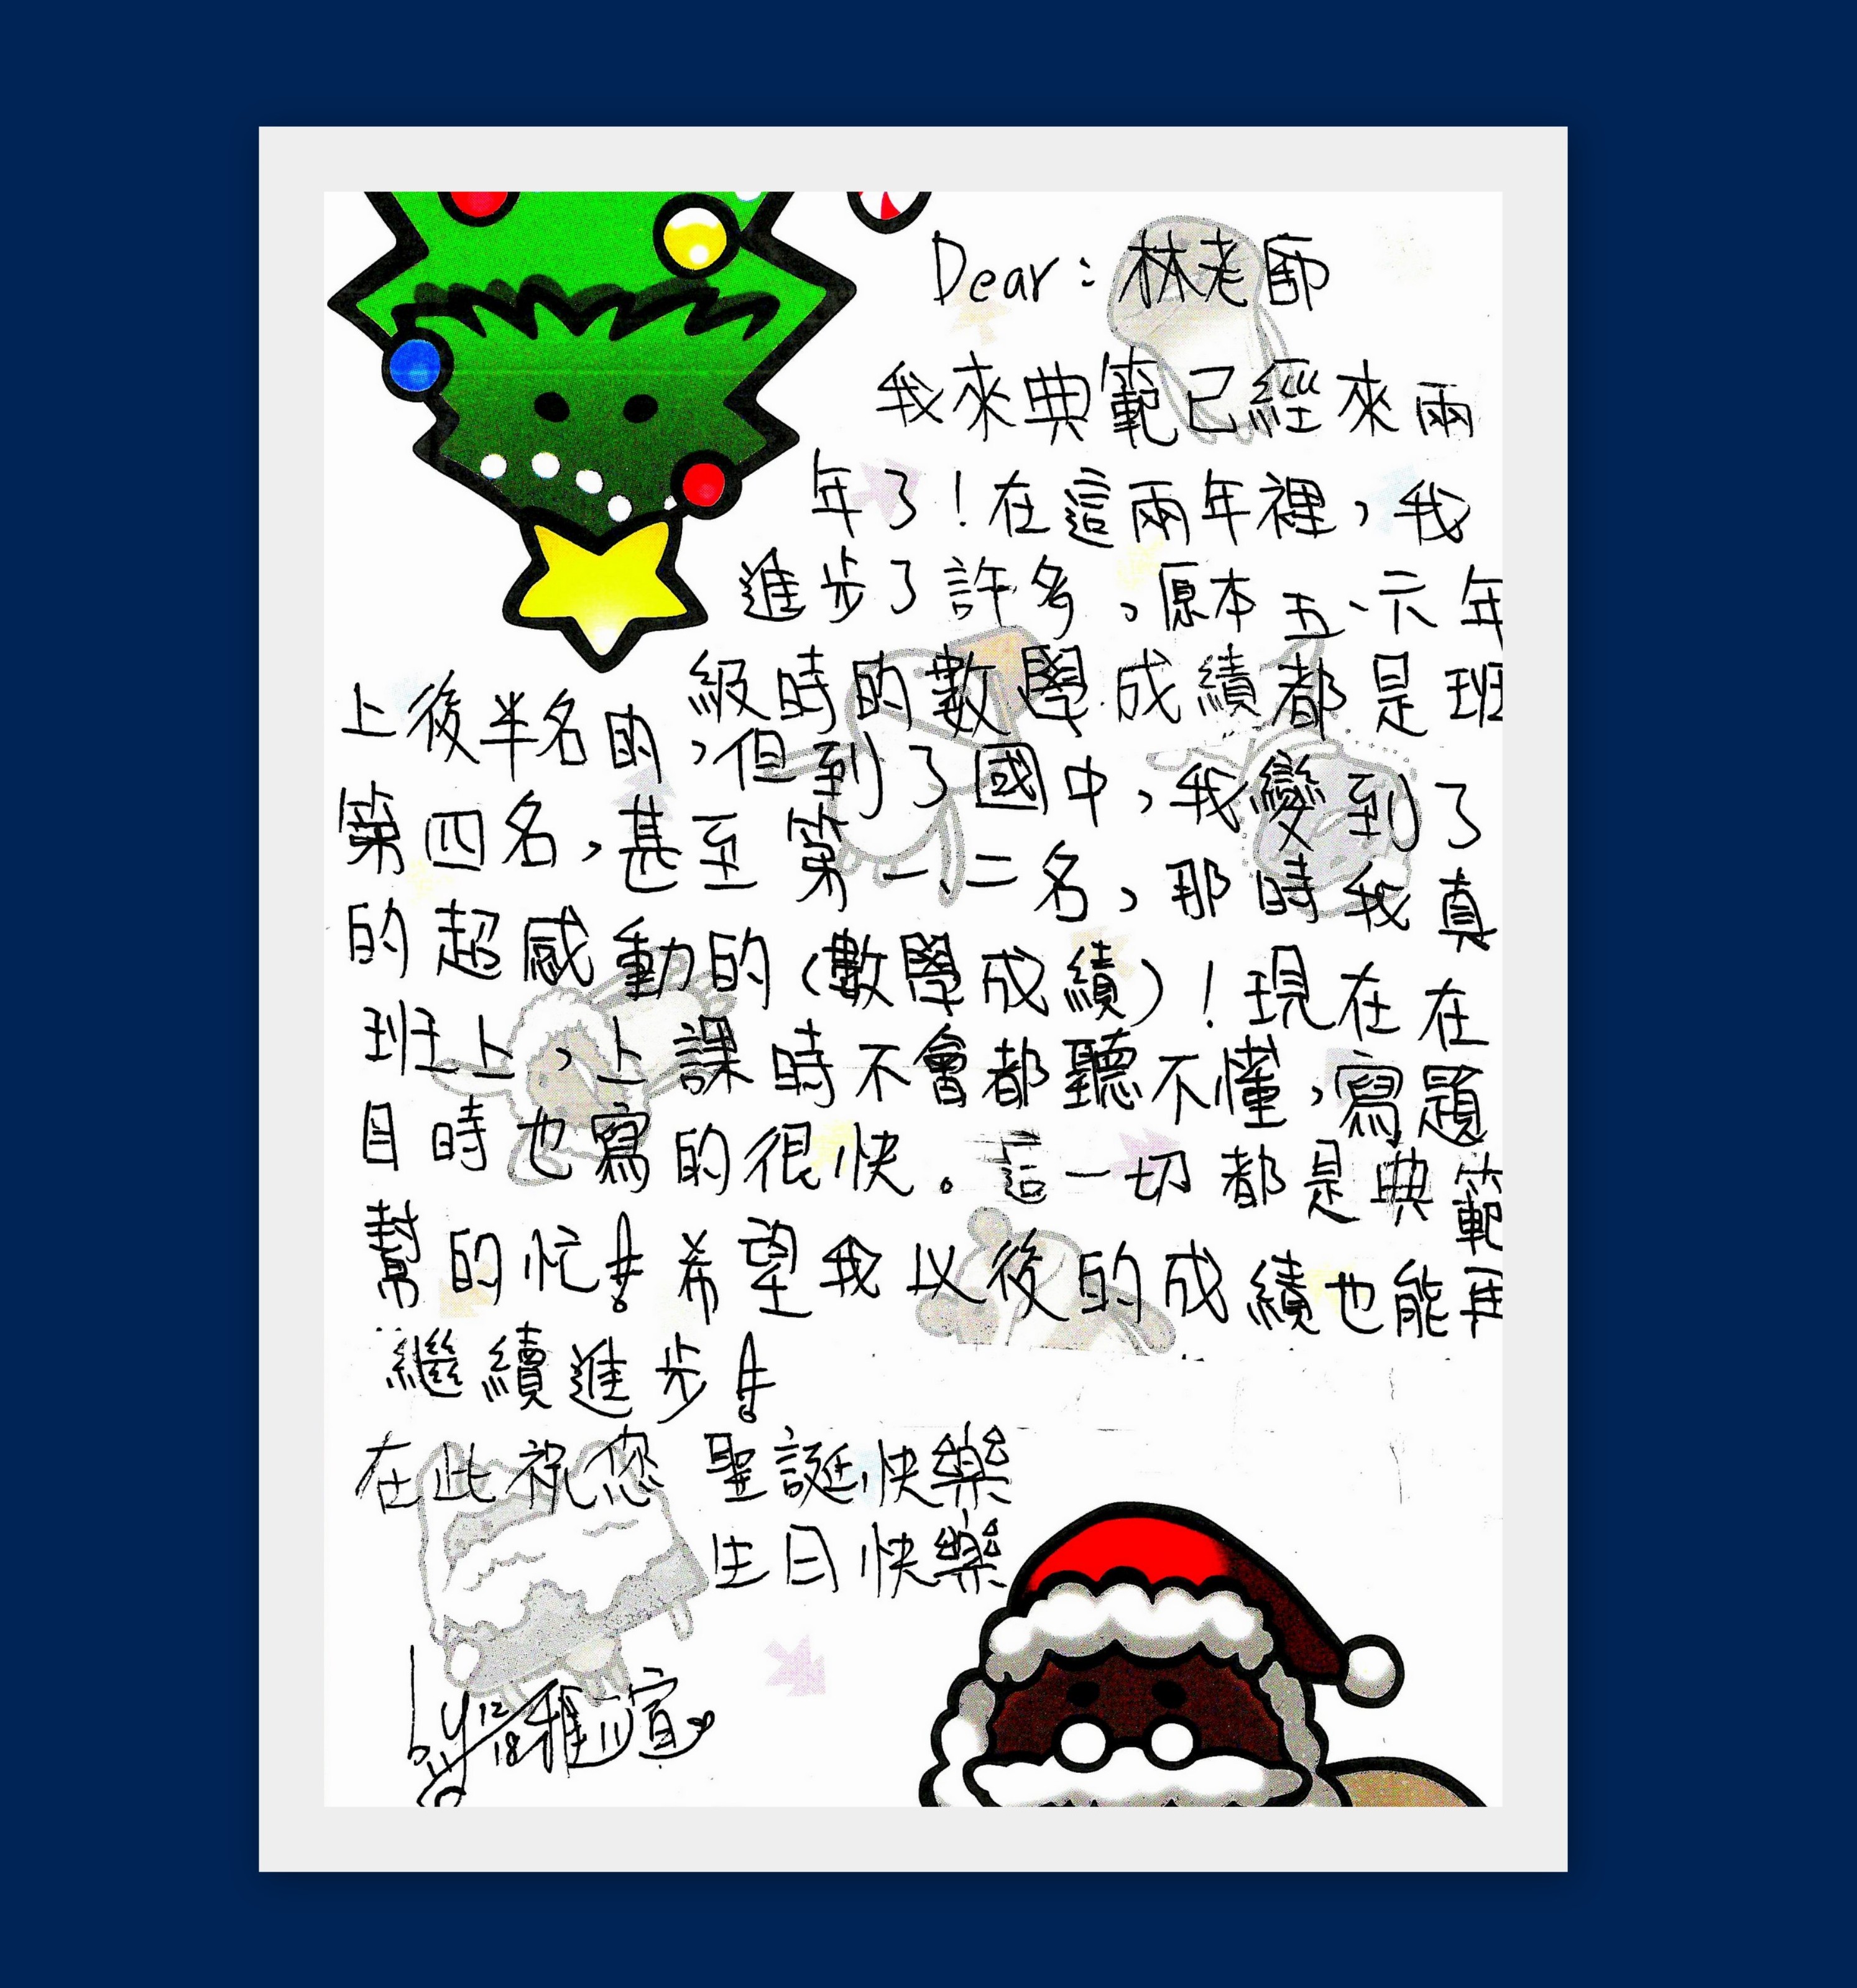 Dear：林老師
我來典範已經來兩
年了！在這兩年裡，我
進步了許多。原本五、六年
級時的數學成績都是班
上後半名的，但到了國中，我變到了
第四名，甚至第一、二名，那時我真
的超感動的（數學成績）！現在在
班上，上課時不會都聽不懂，寫題
目時也寫的很快。這一切都是典範
幫的忙！希望我以後的成績也能再
繼續進步！
在此祝您 聖誕快樂
生日快樂
by 雅萱
12/18